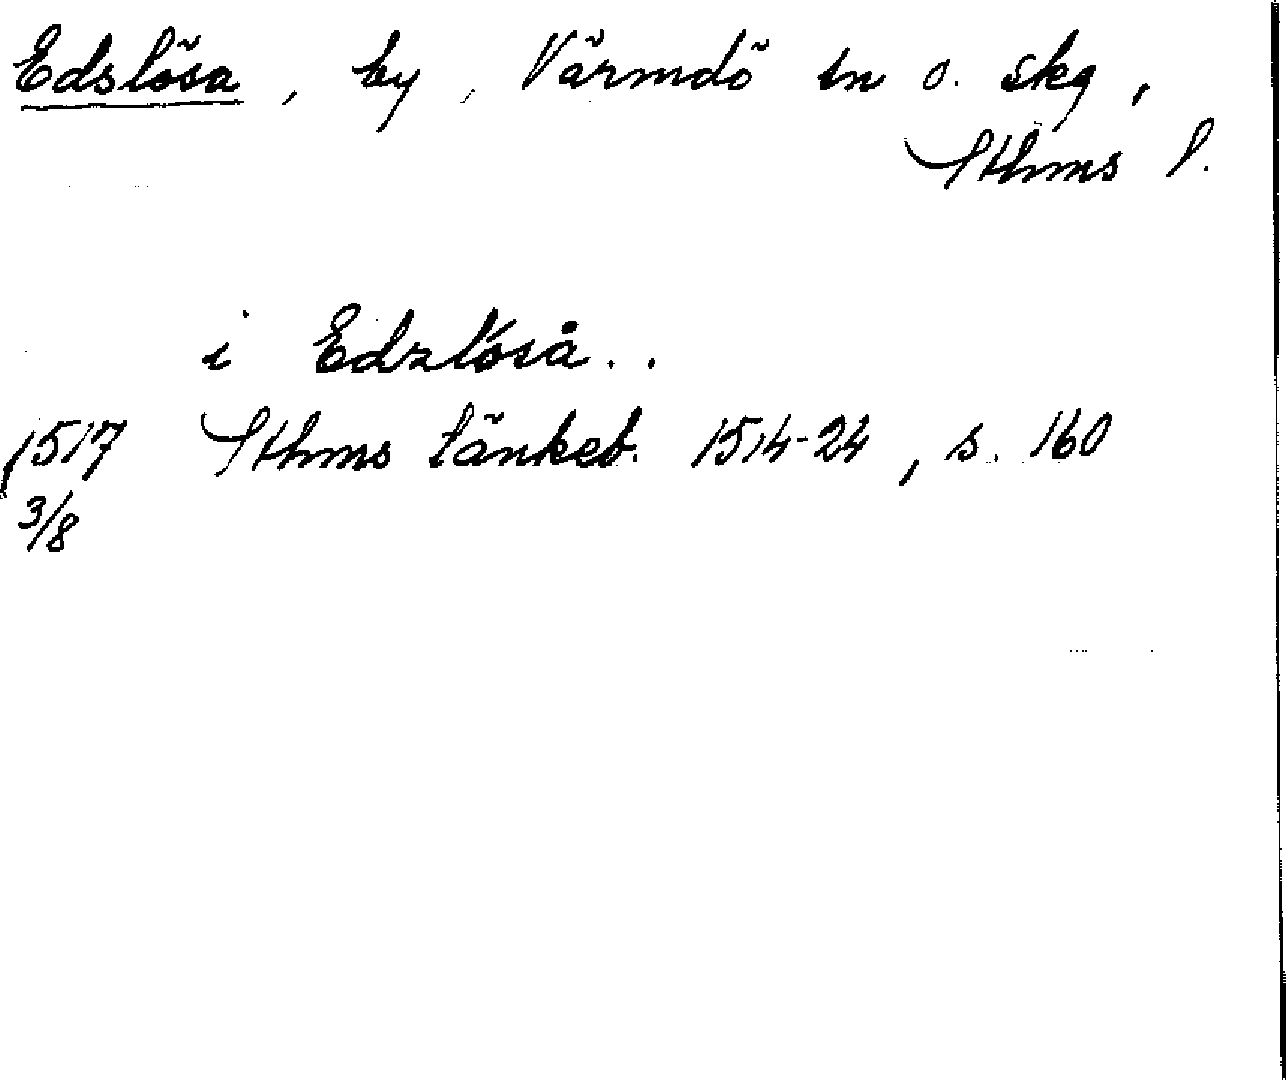 Edslösa, by, Värmdö sn o. skg,
Sthms l.
i Edzlöså..
1517 Sthms tänkeb. 1514-24, s. 160
3/8